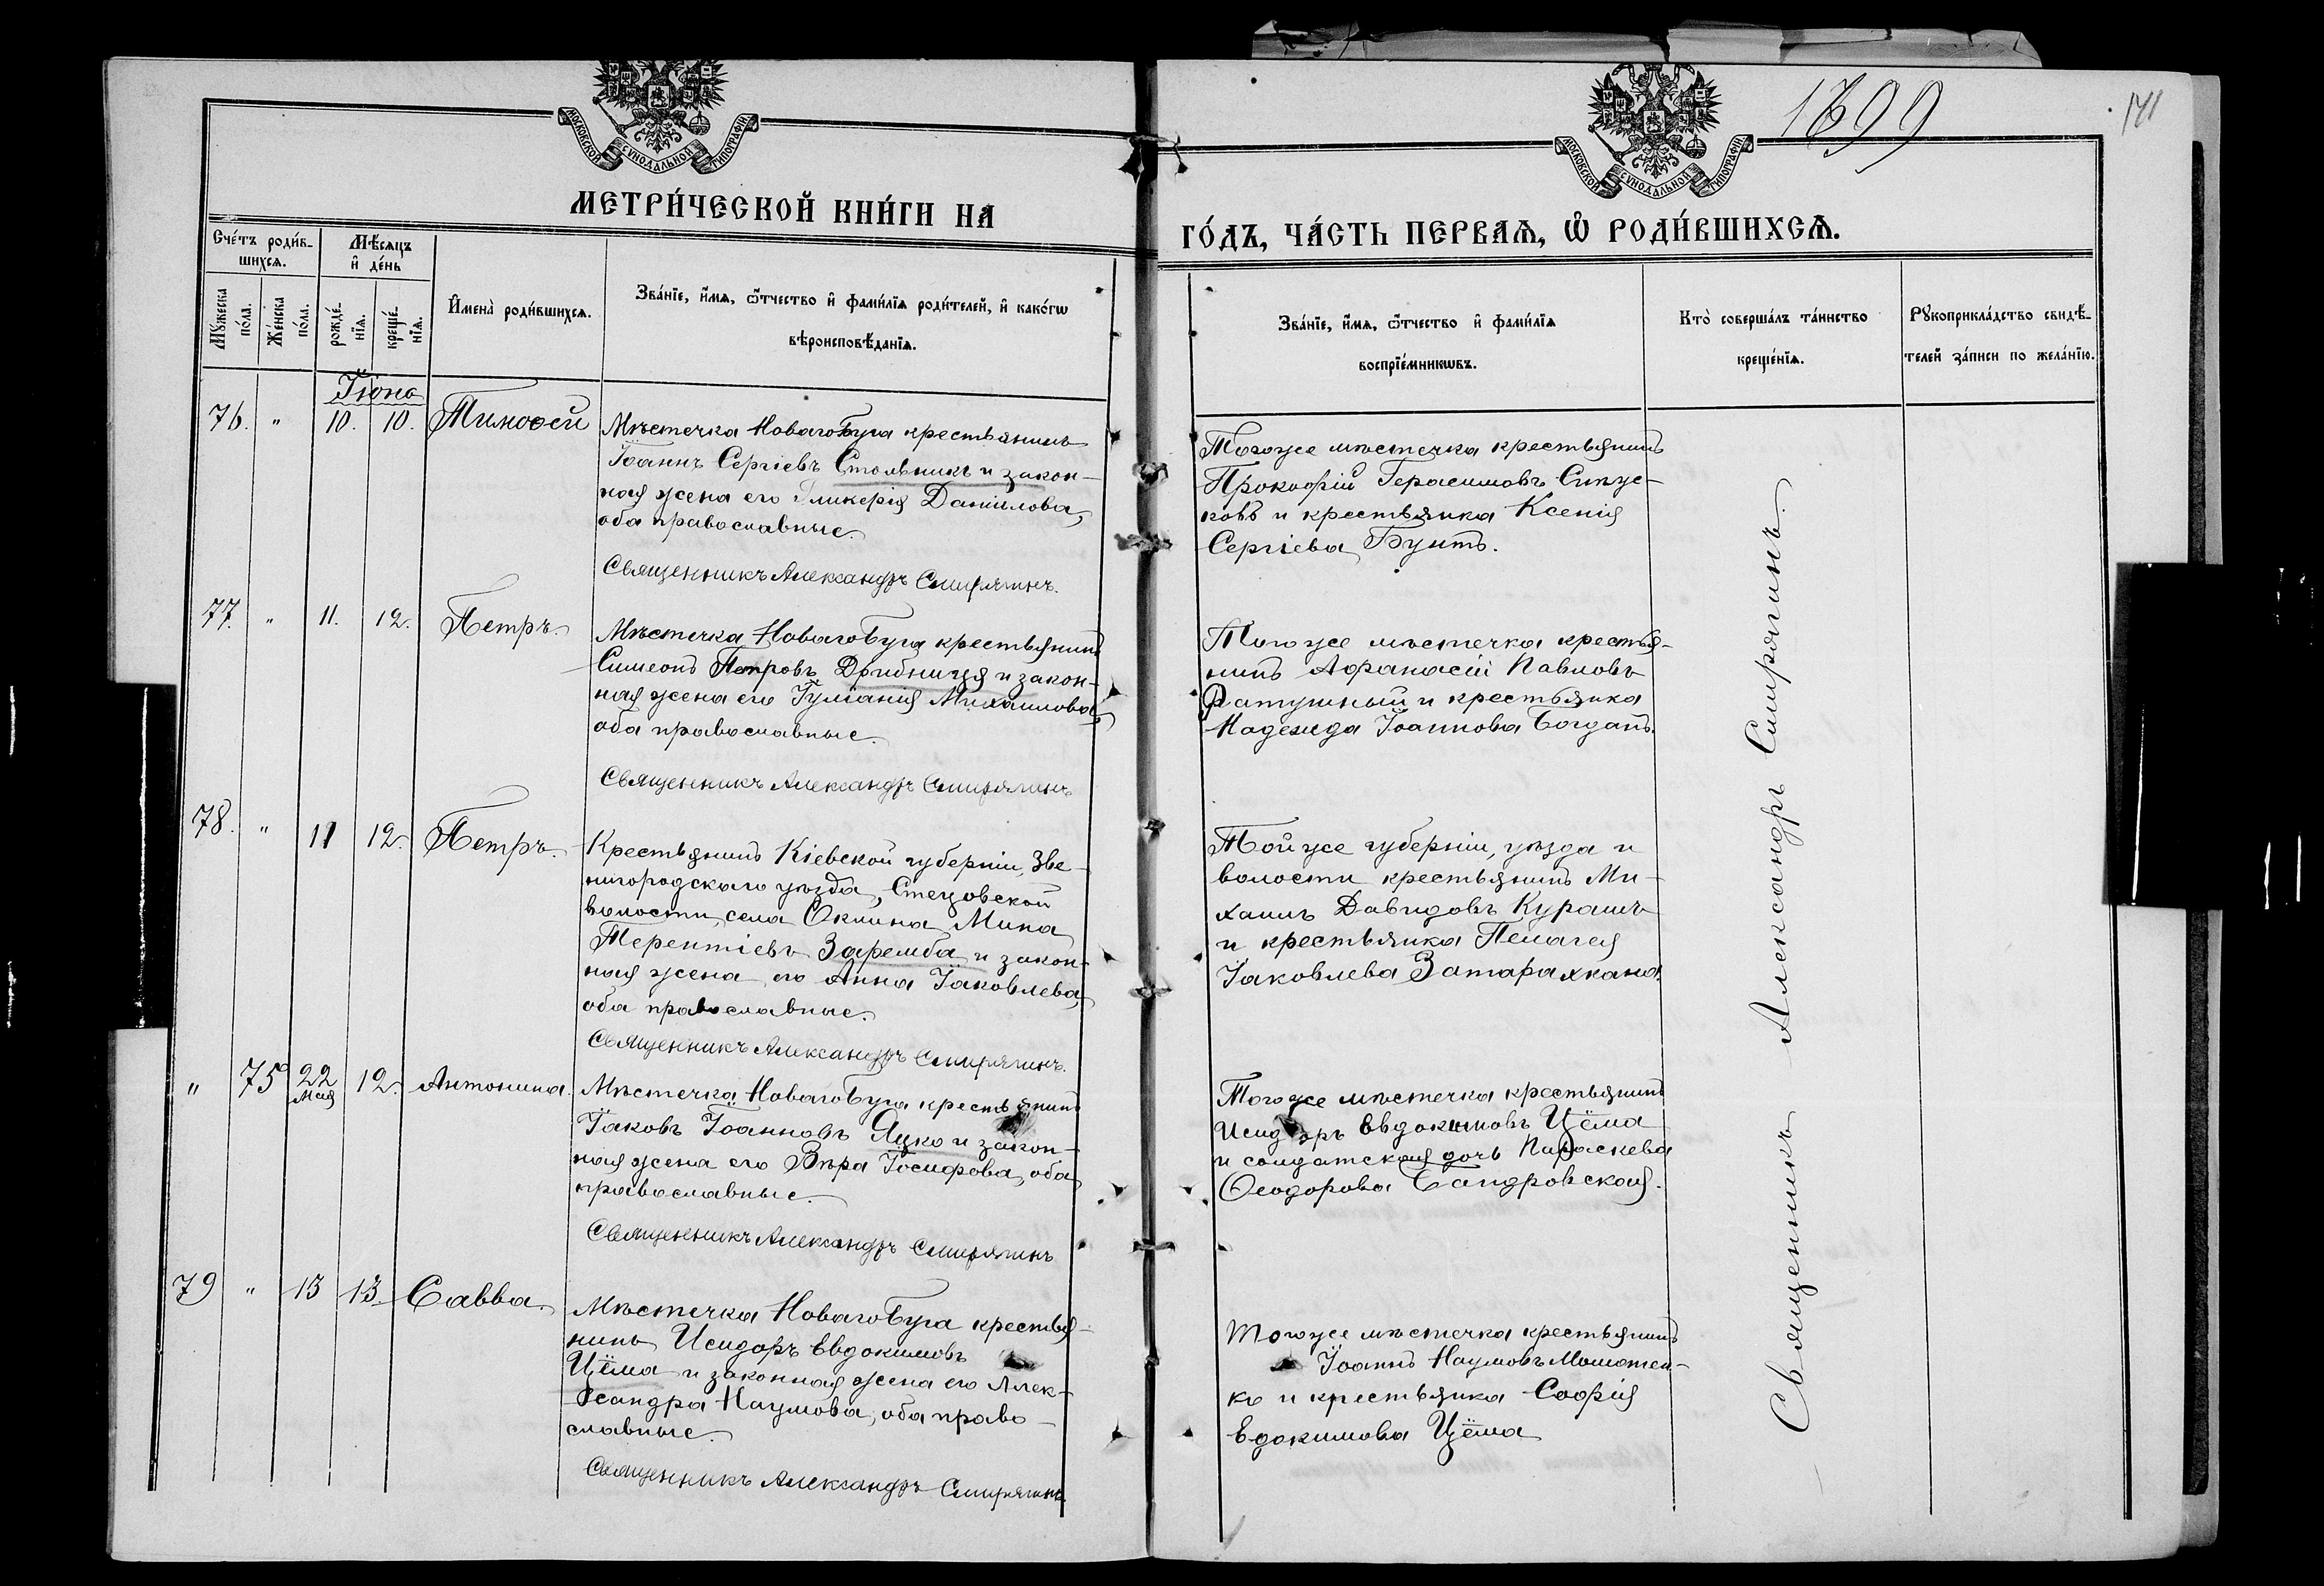 1899
141
МОСКОВСКОЙ СУНОДАЛЬНОЙ ТИПОГРАФІИ
МОСКОВСКОЙ СУНОДАЛЬНОЙ ТИПОГРАФІИ
МЕТРИ́ЧЕСКОЙ КНИ́ГИ НА
ГО́ДЪ, ЧА́СТЬ ПЕРВАѦ, Ѡ РОДИ́ВШИХСѦ.
Сче́тъ роди́в-
шихсѧ.
Мꙋжеска
по́ла.
Же́нска
по́ла.
Мѣ́сѧцъ
и҆ де́нь
рожде́-
нїѧ.
креще́-
нїѧ.
И҆мена̀ роди́вшихсѧ.
Зва́нїе, и҆́мѧ, ѻ҆́тчество и҆ фами́лїѧ роди́телей, и҆ како́гѡ
вѣроисповѣ́данїѧ.
Зва́нїе, и҆́мѧ, ѻ҆́тчество и҆ фами́лїѧ
воспрїе́мникѡвъ.
Кто̀ соверша́лъ та́инство
креще́нїѧ.
Рꙋкоприкла́дство свидѣ́-
телей за́писи по жела́нїю.
Іюня
76. " 10. 10. Тимоѳей
Мѣстечка Новаго Буга крестьянинъ
Іоаннъ Сергіевъ Стольникъ и закон-
ная жена его Гликерія Даніилова,
оба православные.
Священникъ Александръ Смирягинъ.
Тогоже мѣстечка крестьянинъ
Прокофій Герасимовъ Сипус-
ковъ и крестьянка Ксенія
Сергіева Бунтъ.
77. " 11. 12. Петръ.
Мѣстечка Новаго Буга крестьянинъ
Симеонъ Петровъ Дрибница и закон-
ная жена его Іуліанія Михаилова,
оба православные.
Священникъ Александръ Смирягинъ
Тогоже мѣстечка крестья-
нинъ Афанасій Павловъ
Ратушный и крестьянка
Надежда Іоаннова Богданъ.
78. " 11 12. Петръ.
Крестьянинъ Кіевской губерніи, Зве-
нигородскаго уѣзда, Стецовской
волости, села Окнина Мина
Терентіевъ Заремба и закон-
ная жена его Анна Іаковлева,
оба православные.
Священникъ Александръ Смирягинъ.
Той же губерніи, уѣзда и
волости крестьянинъ Ми-
хаилъ Давидовъ Курашъ
и крестьянка Пелагея
Іаковлева Затарахкана.
" 75 22 Мая 12. Антонина.
Мѣстечка Новаго Буга крестьянинъ
Іаковъ Іоанновъ Яцко и закон-
ная жена его Вѣра Іосифова, оба
православные.
Священникъ Александръ Смирягинъ
Тогоже мѣстечка крестьянинъ
Исидоръ Евдокимовъ Цёма
и солдатская дочь Параскева
Ѳеодорова Бандровская.
79 " 13 13 Савва.
Мѣстечка Новаго Буга крестья-
нинъ Исидоръ Евдокимовъ
Цёма и законная жена его Алек-
сандра Наумова, оба право-
славные.
Священникъ Александръ Смирягинъ.
Тогоже мѣстечка крестьянинъ
Іоаннъ Наумовъ
и крестьянка Софія
Евдокимова Цёма
Священникъ Александръ Смирягинъ.